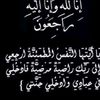 إنا لله وإنا إليه
راجعون
يا أيتها النفس المطمئنة ارجعي
إلى ربك راضية مرضية فادخلي
في عبادي وادخلي جنتي